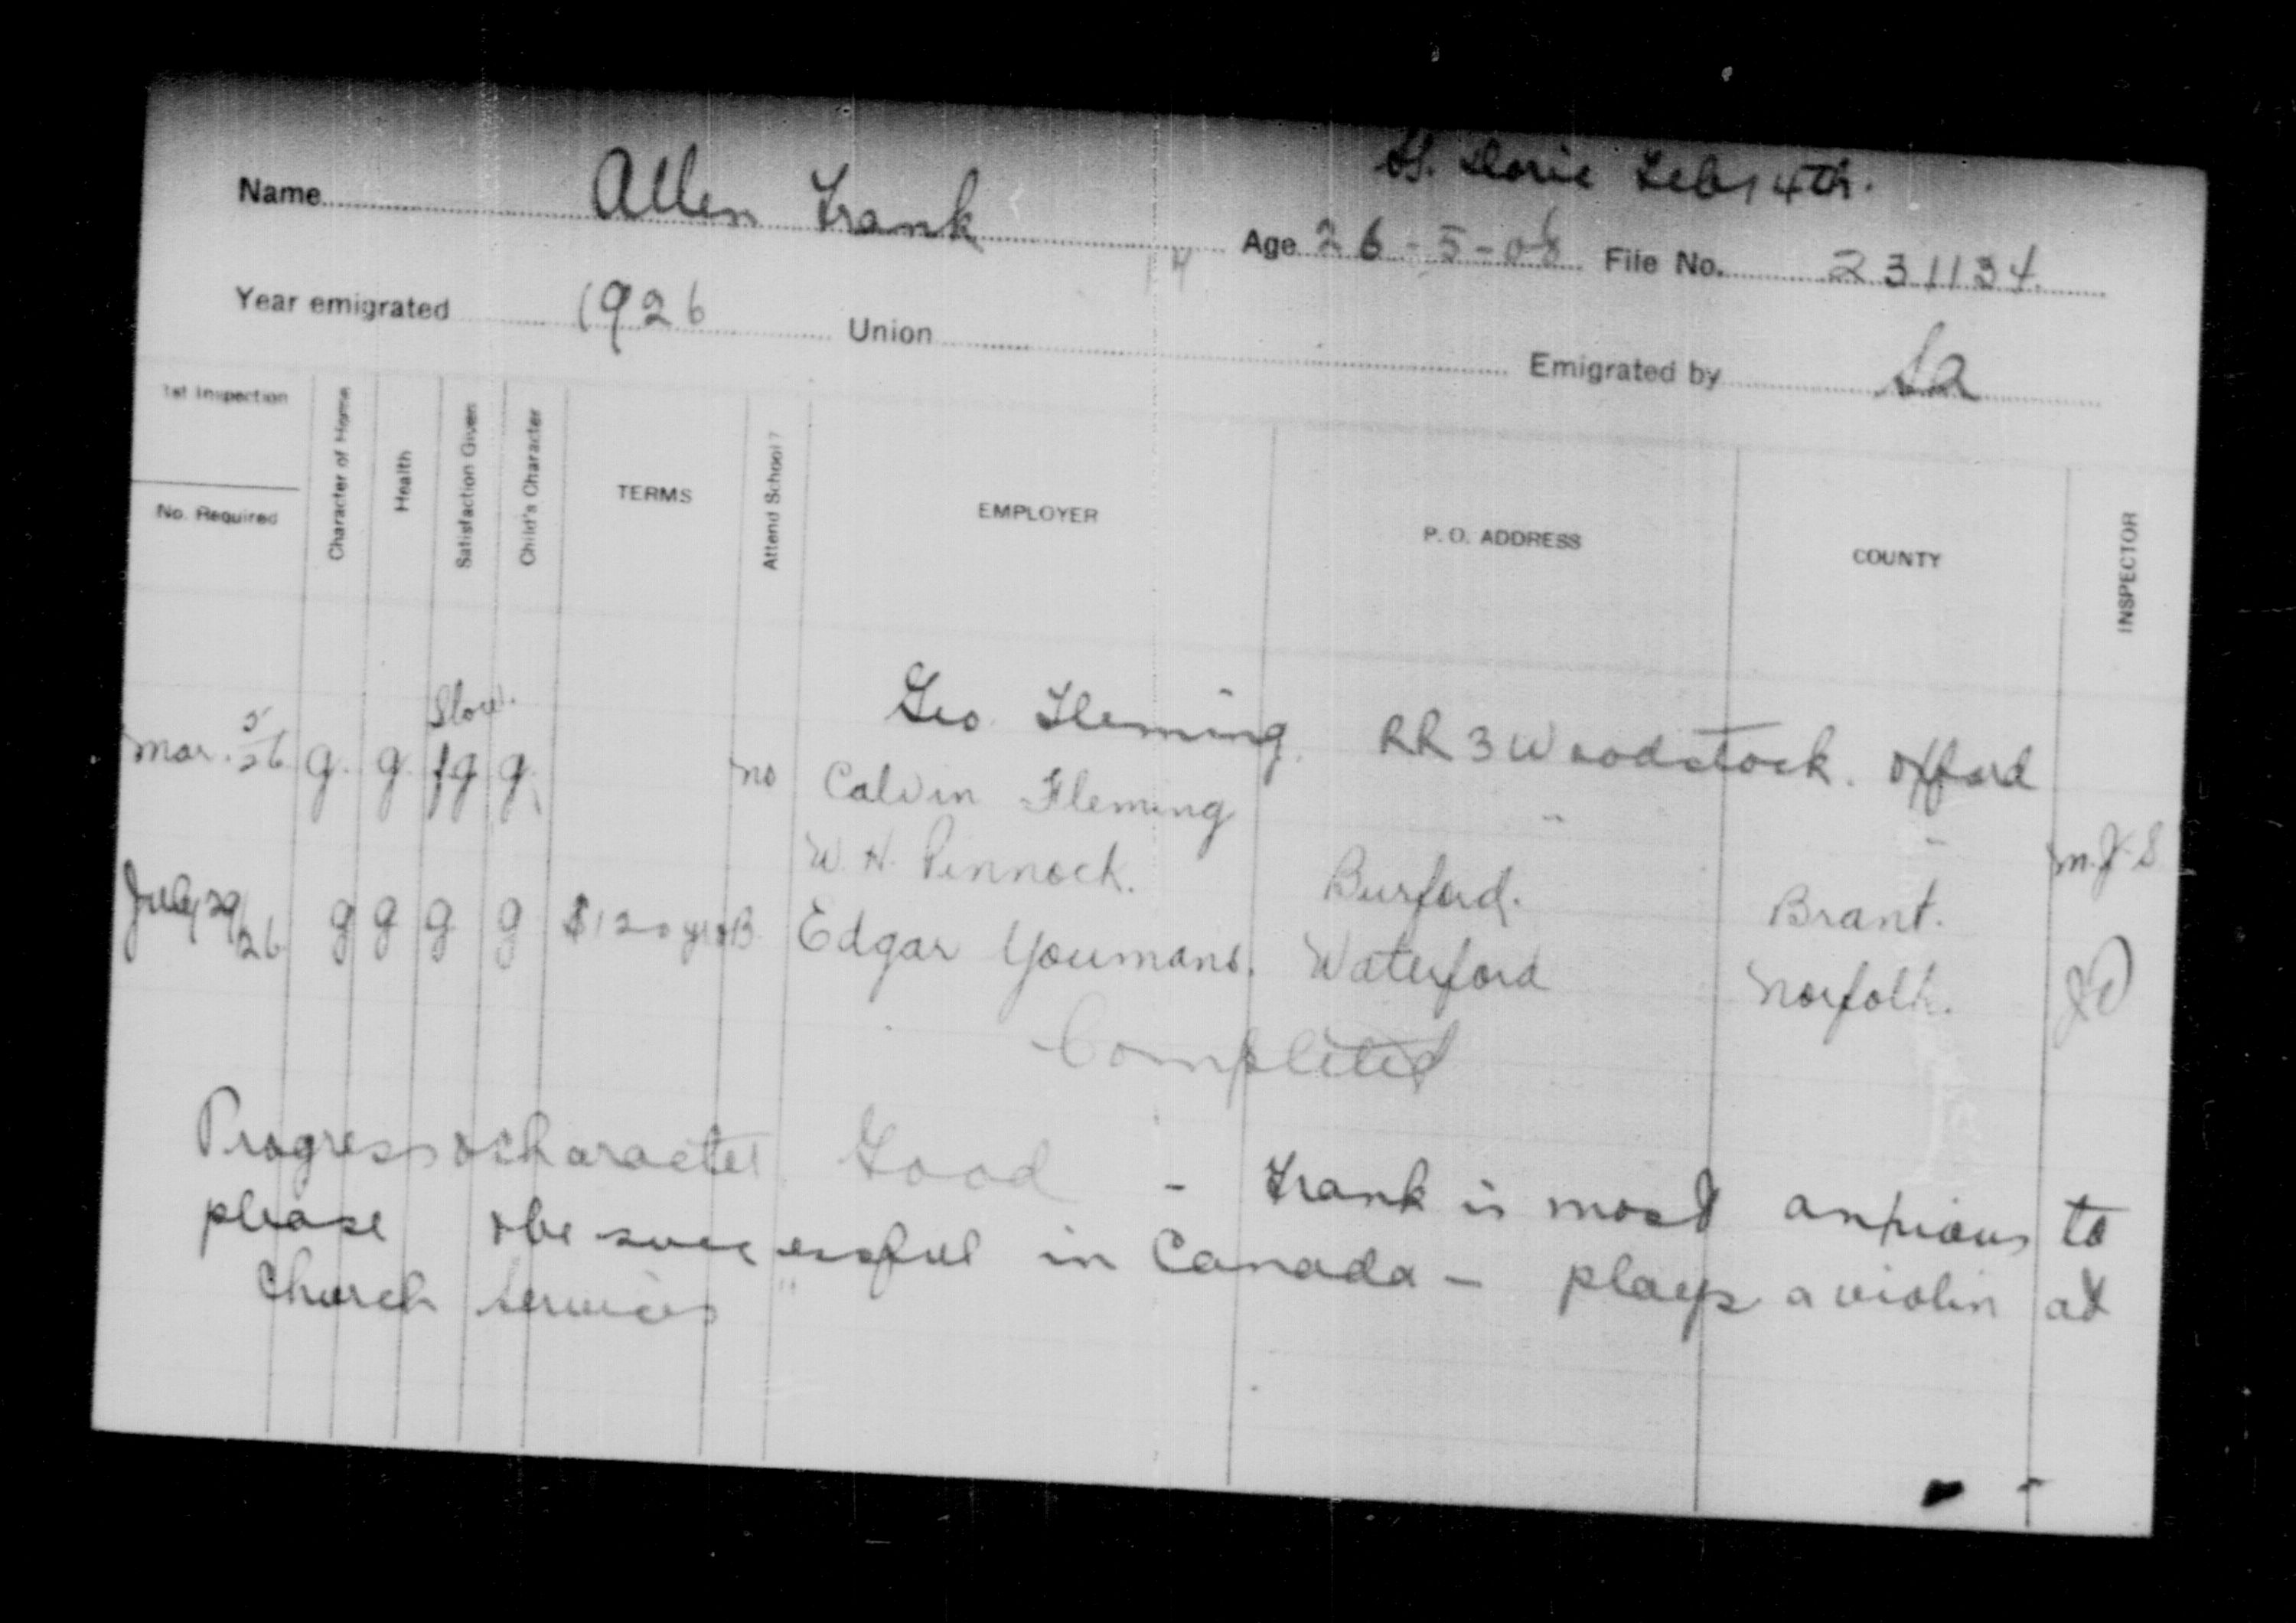 St. Doric Feby 4th.
Name Allen Frank Age 26-5-08 File No. 231134.
14
Year emigrated 1926 Union Emigrated by SA
1st Inspection
No. Required
Character of Home
Health
Satisfaction Given
Child's Character
TERMS
Attend School?
EMPLOYER
P. O. ADDRESS
COUNTY
INSPECTOR
Geo Fleming. RR 3 Woodstock. Oxford
Slow.
Mar. 5/26 g. g fg g. no Calvin Fleming " " M.J.S
W. H. Pennock. Burford. Brant.
July 29/26 g g g g $120 yr & B. Edgar Youmans. Waterford Norfolk.
Completed
Progress & character Good - Frank is most anxious to
please & be successful in Canada - plays a violin at
Church services